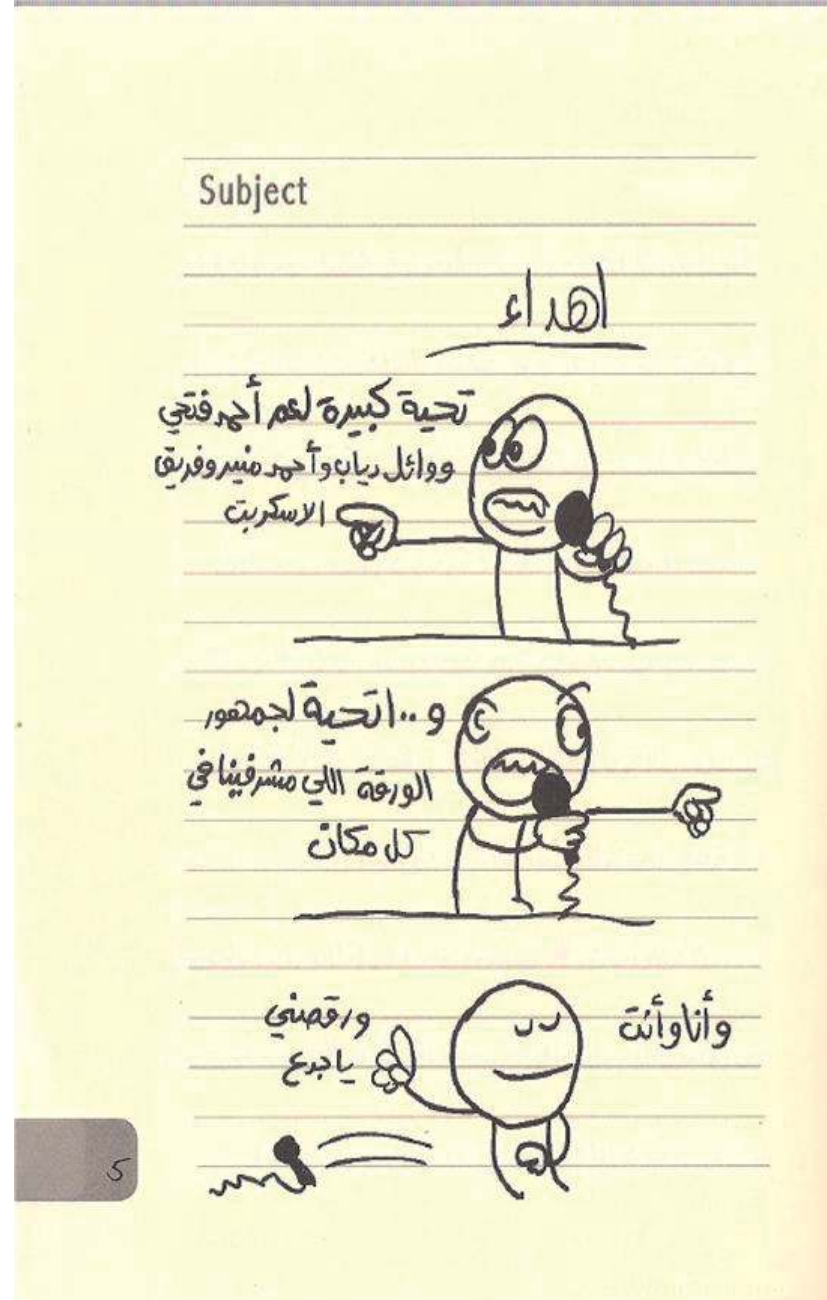 Subject
اهداء
تحية كبيرة لعم أحمد فتحي
ووائل دياب وأحمد منير وفريق
الاسكربت
و..اتحية لجمهور
الورقة اللي مشرفينا في
كل مكان
وأنا وأنت
ورقصني
ياجدع
5